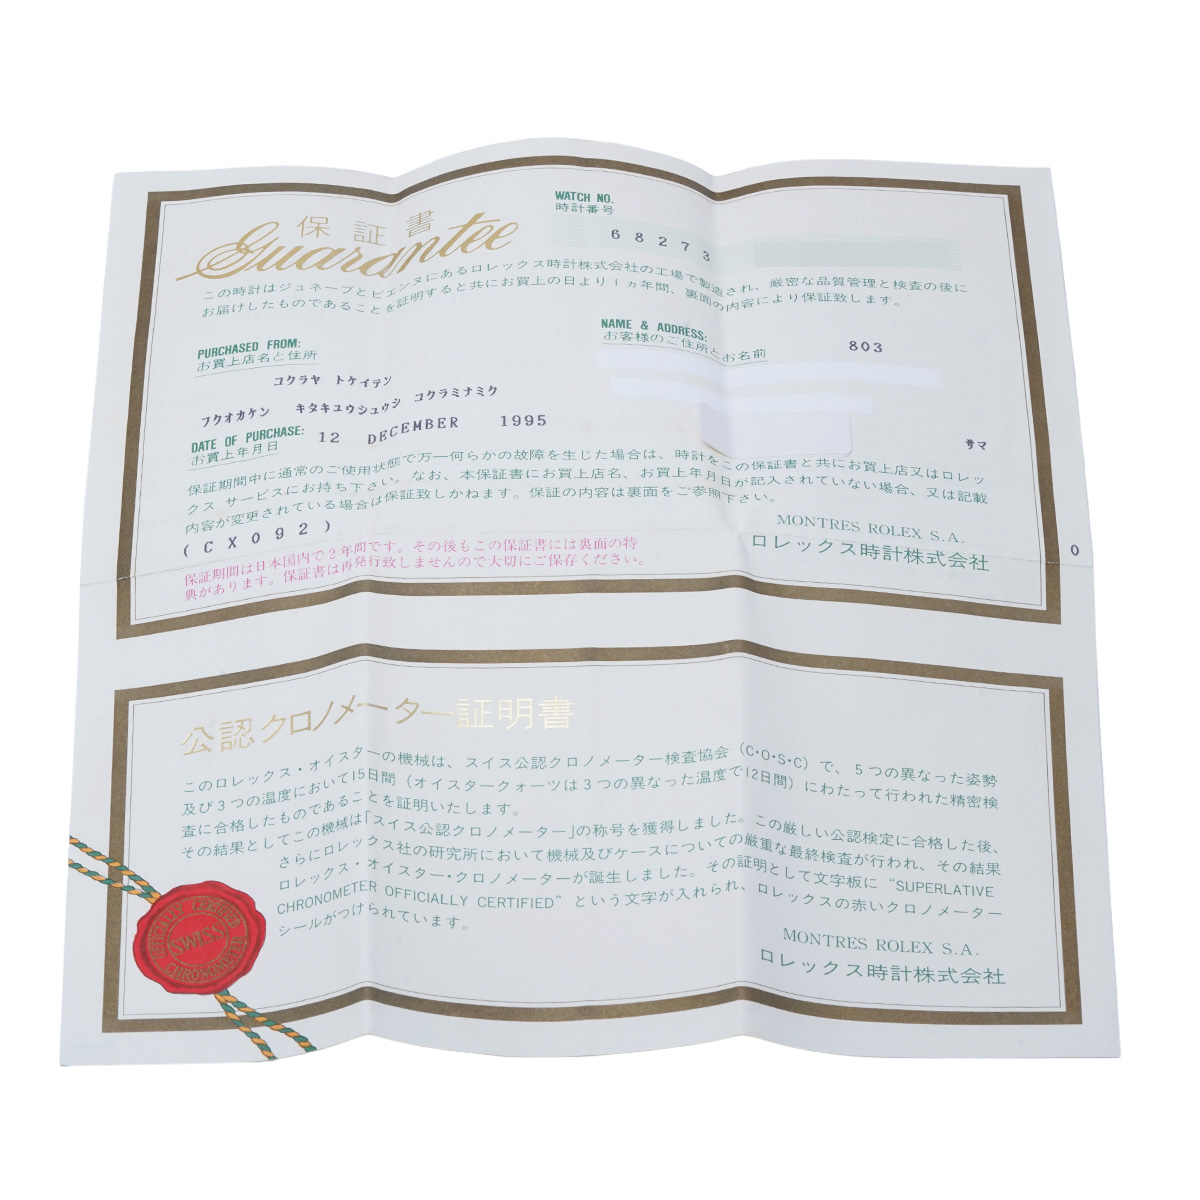 保証書
Guarantee
WATCH NO.
時計番号
68273
この時計はジュネーブとビエンヌにあるロレックス時計株式会社の工場で製造され、厳密な品質管理と検査の後に
お届けしたものであることを証明すると共にお買上の日より1ヵ年間、裏面の内容により保証致します。
PURCHASED FROM:
お買上店名と住所
コクラヤ トケイテン
フクオカケン キタキユウシユウシ コクラミナミク
NAME & ADDRESS:
お客様のご住所とお名前
803
サマ
DATE OF PURCHASE:
お買上年月日
12 DECEMBER 1995
保証期間中に通常のご使用状態で万一何らかの故障を生じた場合は、時計をこの保証書と共にお買上店又はロレッ
クス サービスにお持ち下さい。なお、本保証書にお買上店名、お買上年月日が記入されていない場合、又は記載
内容が変更されている場合は保証致しかねます。保証の内容は裏面をご参照下さい。
(CX092)
MONTRES ROLEX S.A.
ロレックス時計株式会社
0
保証期間は日本国内で2年間です。その後もこの保証書には裏面の特
典があります。保証書は再発行致しませんので大切にご保存ください。
公認クロノメーター証明書
このロレックス・オイスターの機械は、スイス公認クロノメーター検査協会(C・O・S・C)で、5つの異なった姿勢
及び3つの温度において15日間(オイスタークォーツは3つの異なった温度で12日間)にわたって行われた精密検
査に合格したものであることを証明いたします。
その結果としてこの機械は「スイス公認クロノメーター」の称号を獲得しました。この厳しい公認検定に合格した後、
さらにロレックス社の研究所において機械及びケースについての厳重な最終検査が行われ、その結果
ロレックス・オイスター・クロノメーターが誕生しました。その証明として文字板に“SUPERLATIVE
CHRONOMETER OFFICIALLY CERTIFIED”という文字が入れられ、ロレックスの赤いクロノメーター
シールがつけられています。
MONTRES ROLEX S.A.
ロレックス時計株式会社
OFFICIALLY CERTIFIED
SWISS
CHRONOMETER